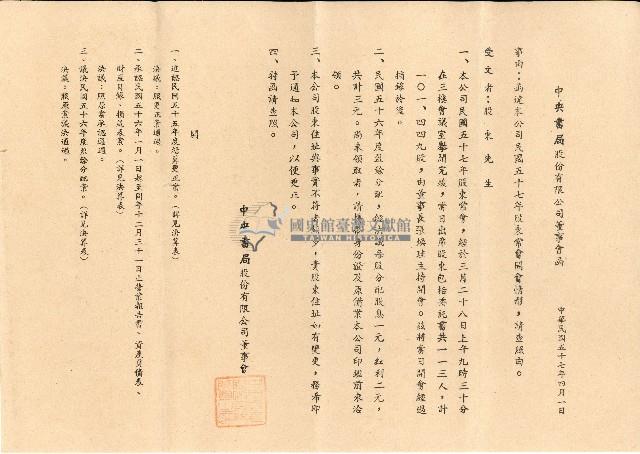 中央書局股份有限公司董事會函
中華民國五十七年四月一日
事由:函達本公司民國五十七年股東常會開會情形,請查照由。
受文者:股東先生
一、本公司民國五十七年股東常會,經於三月二十八日上午九時三十分
在三樓會議室舉開完竣,當日出席股東包括委託書共一一三人,計
一〇一、四四九股,由董事長張煥珪主持開會。茲將當日開會經過
摘錄於後。
二、民國五十六年度盈餘分配,經決議每股分配股息一元,紅利二元,
共計三元。尚未領取者,請携帶身份證及原備業本公司印鑑前來洽
領。
三、本公司股東住址與事實不符者頗多,貴股東住址如有變更,務希即
予通知本公司,以便更正。
四、特函請查照。
中央書局股份有限公司董事會
開
一、追認民國五十五年度結算更正案。(詳見決算表)
決議:照更正案通過。
二、承認民國五十六年一月一日起至同年十二月三十一日止營業報告書、資產負債表、
財產目錄、損益表案。(詳見決算表)
決議:照原案承認通過。
三、議決民國五十六年度盈餘分配案。(詳見決算表)
決議:照原案議決通過。
國史館臺灣文獻館
TAIWAN HISTORICA